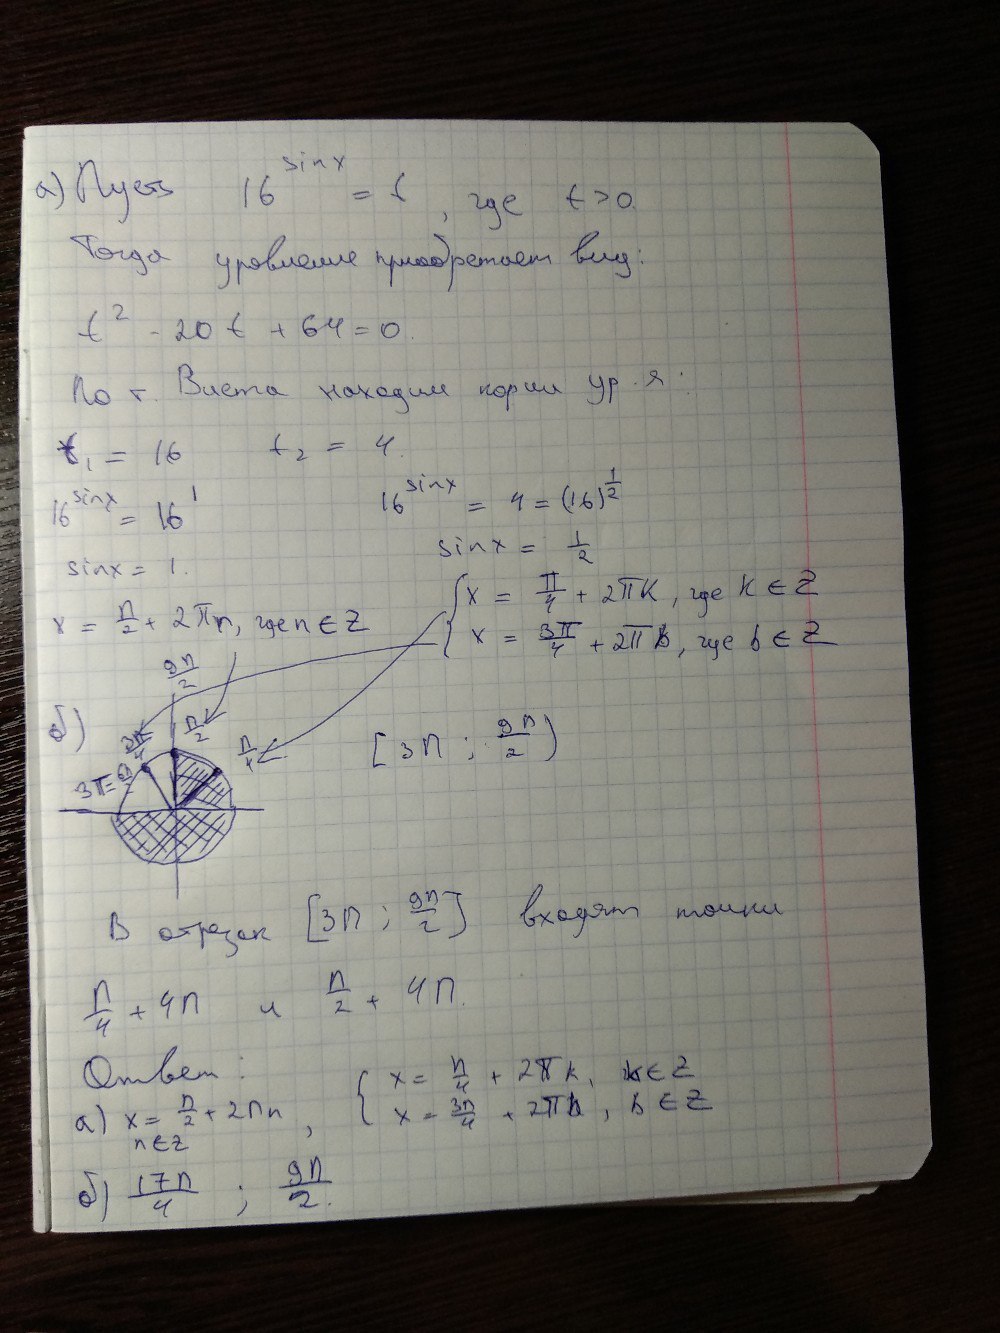 а) Пусть 16^sinx = t, где t>0.
Тогда уравнение приобретает вид:
t² - 20t + 64 = 0.
По т. Виета находим корни ур-я:
t₁ = 16 t₂ = 4.
16^sinx = 16¹ 16^sinx = 4 = (16)^1/2
sinx = 1. sinx = 1/2
x = π/2 + 2πn, где n ∈ Z { x = π/4 + 2πk, где k ∈ Z
x = 3π/4 + 2πb, где b ∈ Z
9π/2
б) 3π/4 π/2 π/4 [3π ; 9π/2)
3π=
В отрезок [3π ; 9π/2] входят точки
π/4 + 4π и π/2 + 4π.
Ответ:
а) x = π/2 + 2πn, n∈Z { x = π/4 + 2πk, k∈Z
x = 3π/4 + 2πb, b ∈ Z
б) 17π/4 ; 9π/2.